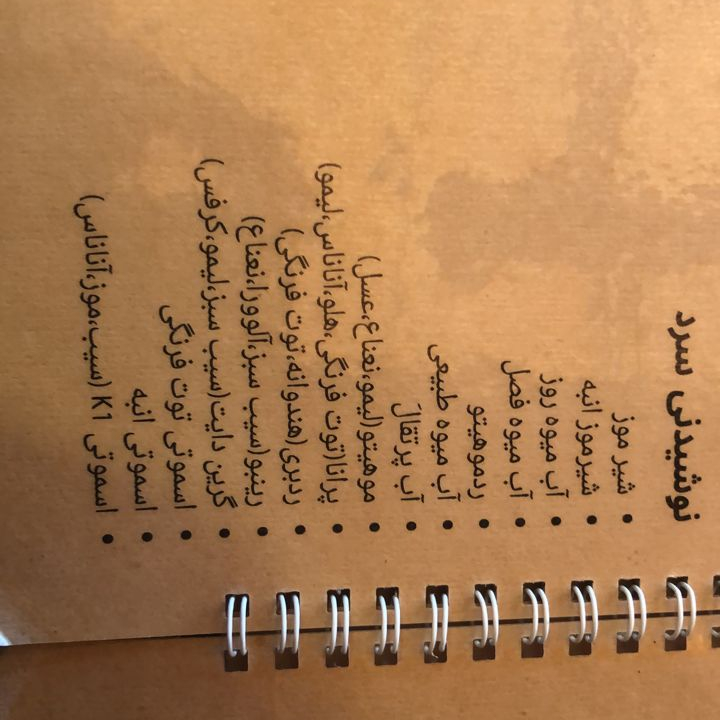 نوشیدنی سرد
شیر موز
شیرموز انبه
آب میوه روز
آب میوه فصل
ردموهیتو
آب میوه طبیعی
آب پرتقال
موهیتو(لیمو،نعناع،عسل)
پرانا(توت فرنگی،هلو،آناناس،لیمو)
ردبری(هندوانه،توت فرنگی)
رینبو(سیب سبز،آلوورا،نعناع)
گرین دایت(سیب سبز،لیمو،کرفس)
اسموتی توت فرنگی
اسموتی انبه
اسموتی K1 (سیب،موز،آناناس)